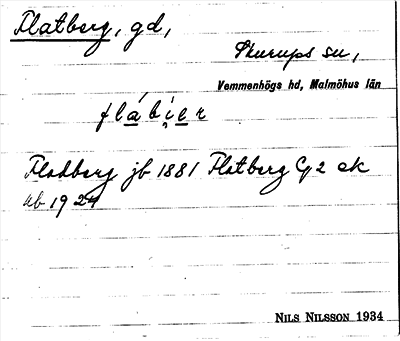 Flatberg, gd,
Skurups sn,
Vemmenhögs hd, Malmöhus län
flábi̯er
Fladberg jb 1881 Flatberg G 2 ek
ab 1924
NILS NILSSON 1934